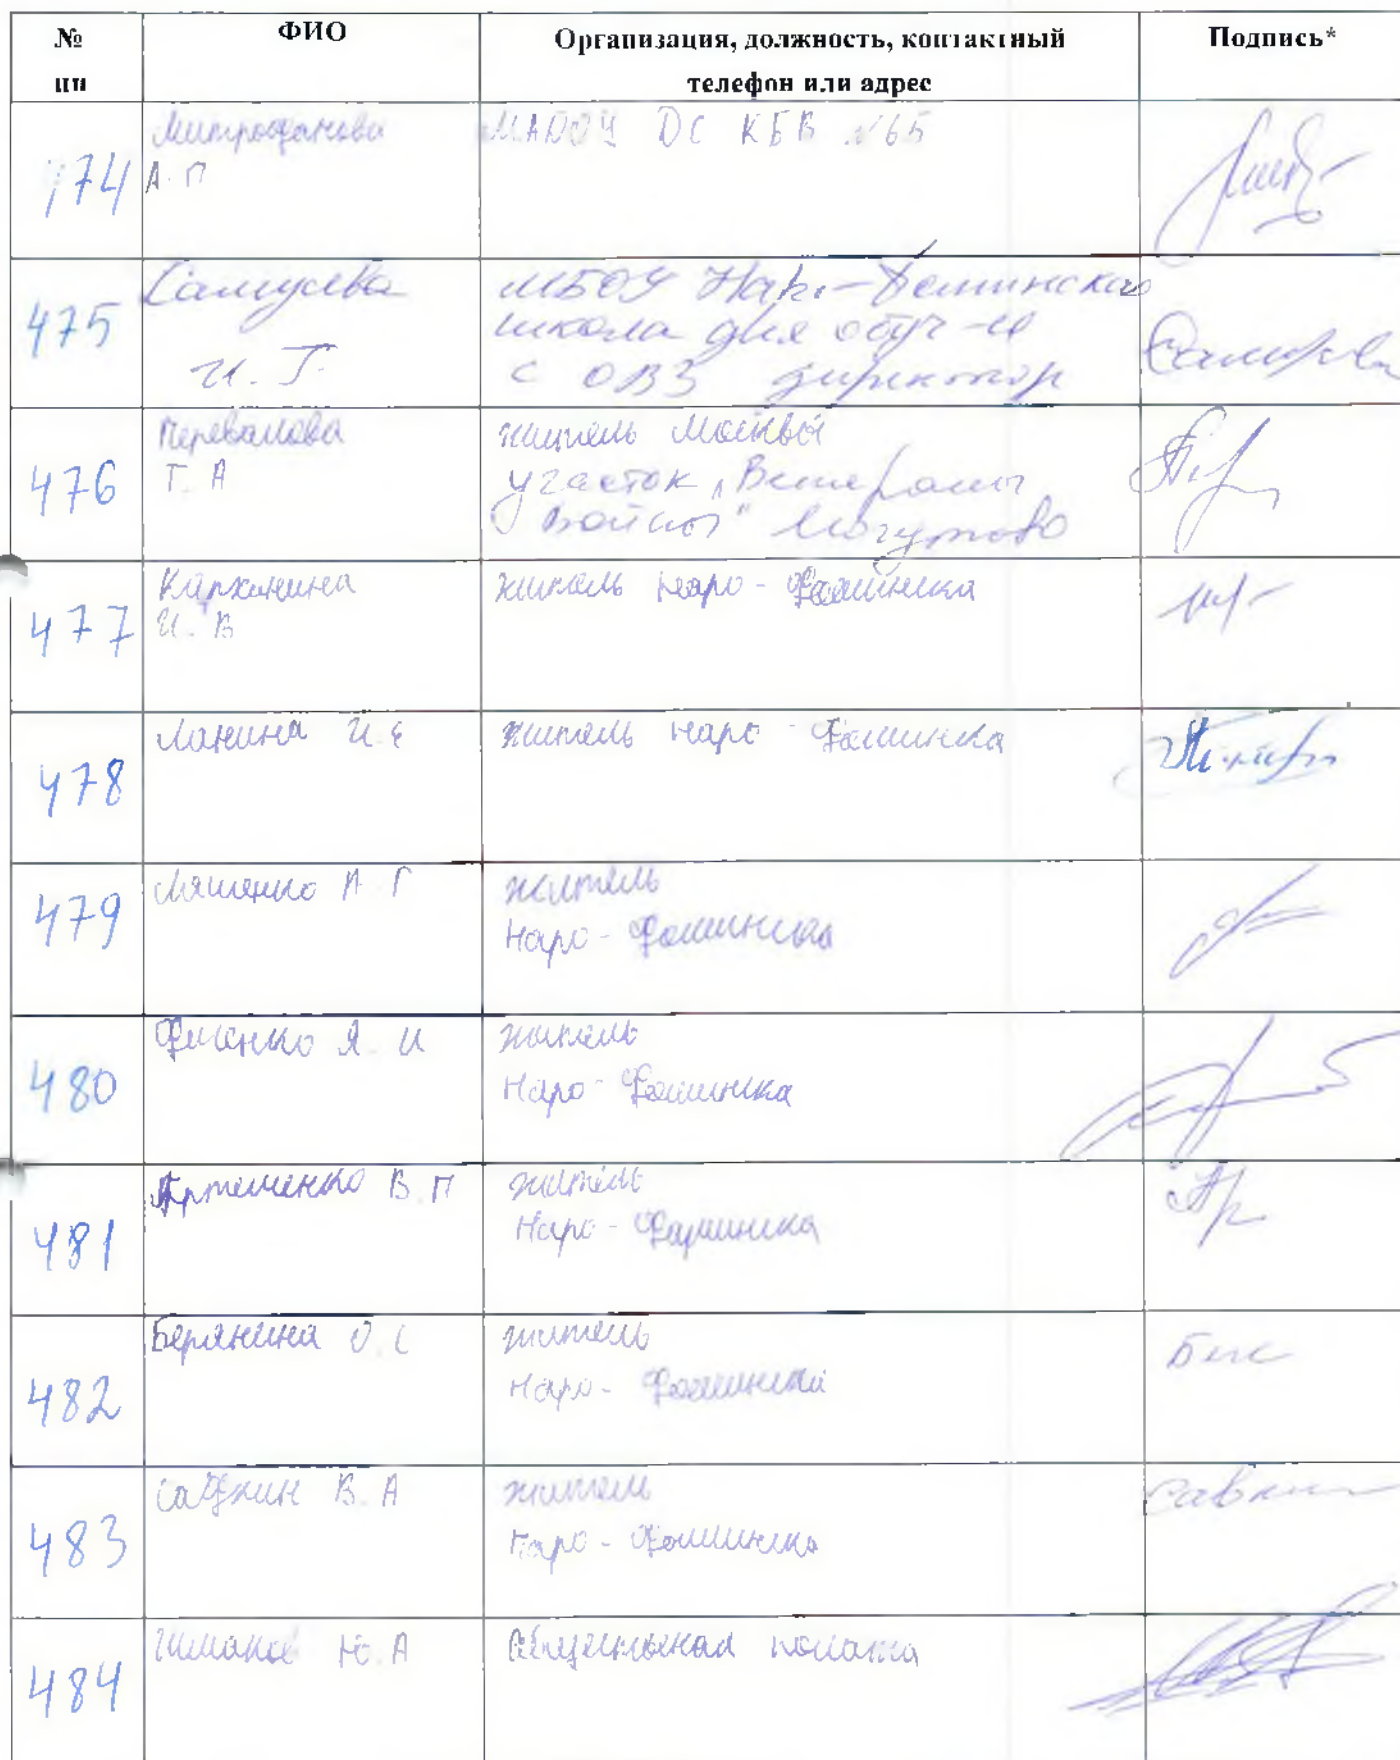 № ФИО Организация, должность, контактный Подпись*
пп телефон или адрес
474 Митрофанова МАДОУ ДС КБВ №65
А. П
475 Самусева МБОУ Наро-Фоминская
И. Г. школа для обуч-ся
с ОВЗ директор
476 Перевалова житель Москвы
Т. А участок "Ветераны
войны" Могутово
477 житель Наро-Фоминска
И. В
478 Ланина И. Е житель Наро-Фоминска
479 Ляшенко А Г житель
Наро-Фоминска
480 Фесенко Я. И житель
Наро-Фоминска
481 Артеменко В. П житель
Наро-Фоминска
482 О. С житель
Наро-Фоминска
483 В. А житель
Наро-Фоминска
484 Ю. А Общественная палата